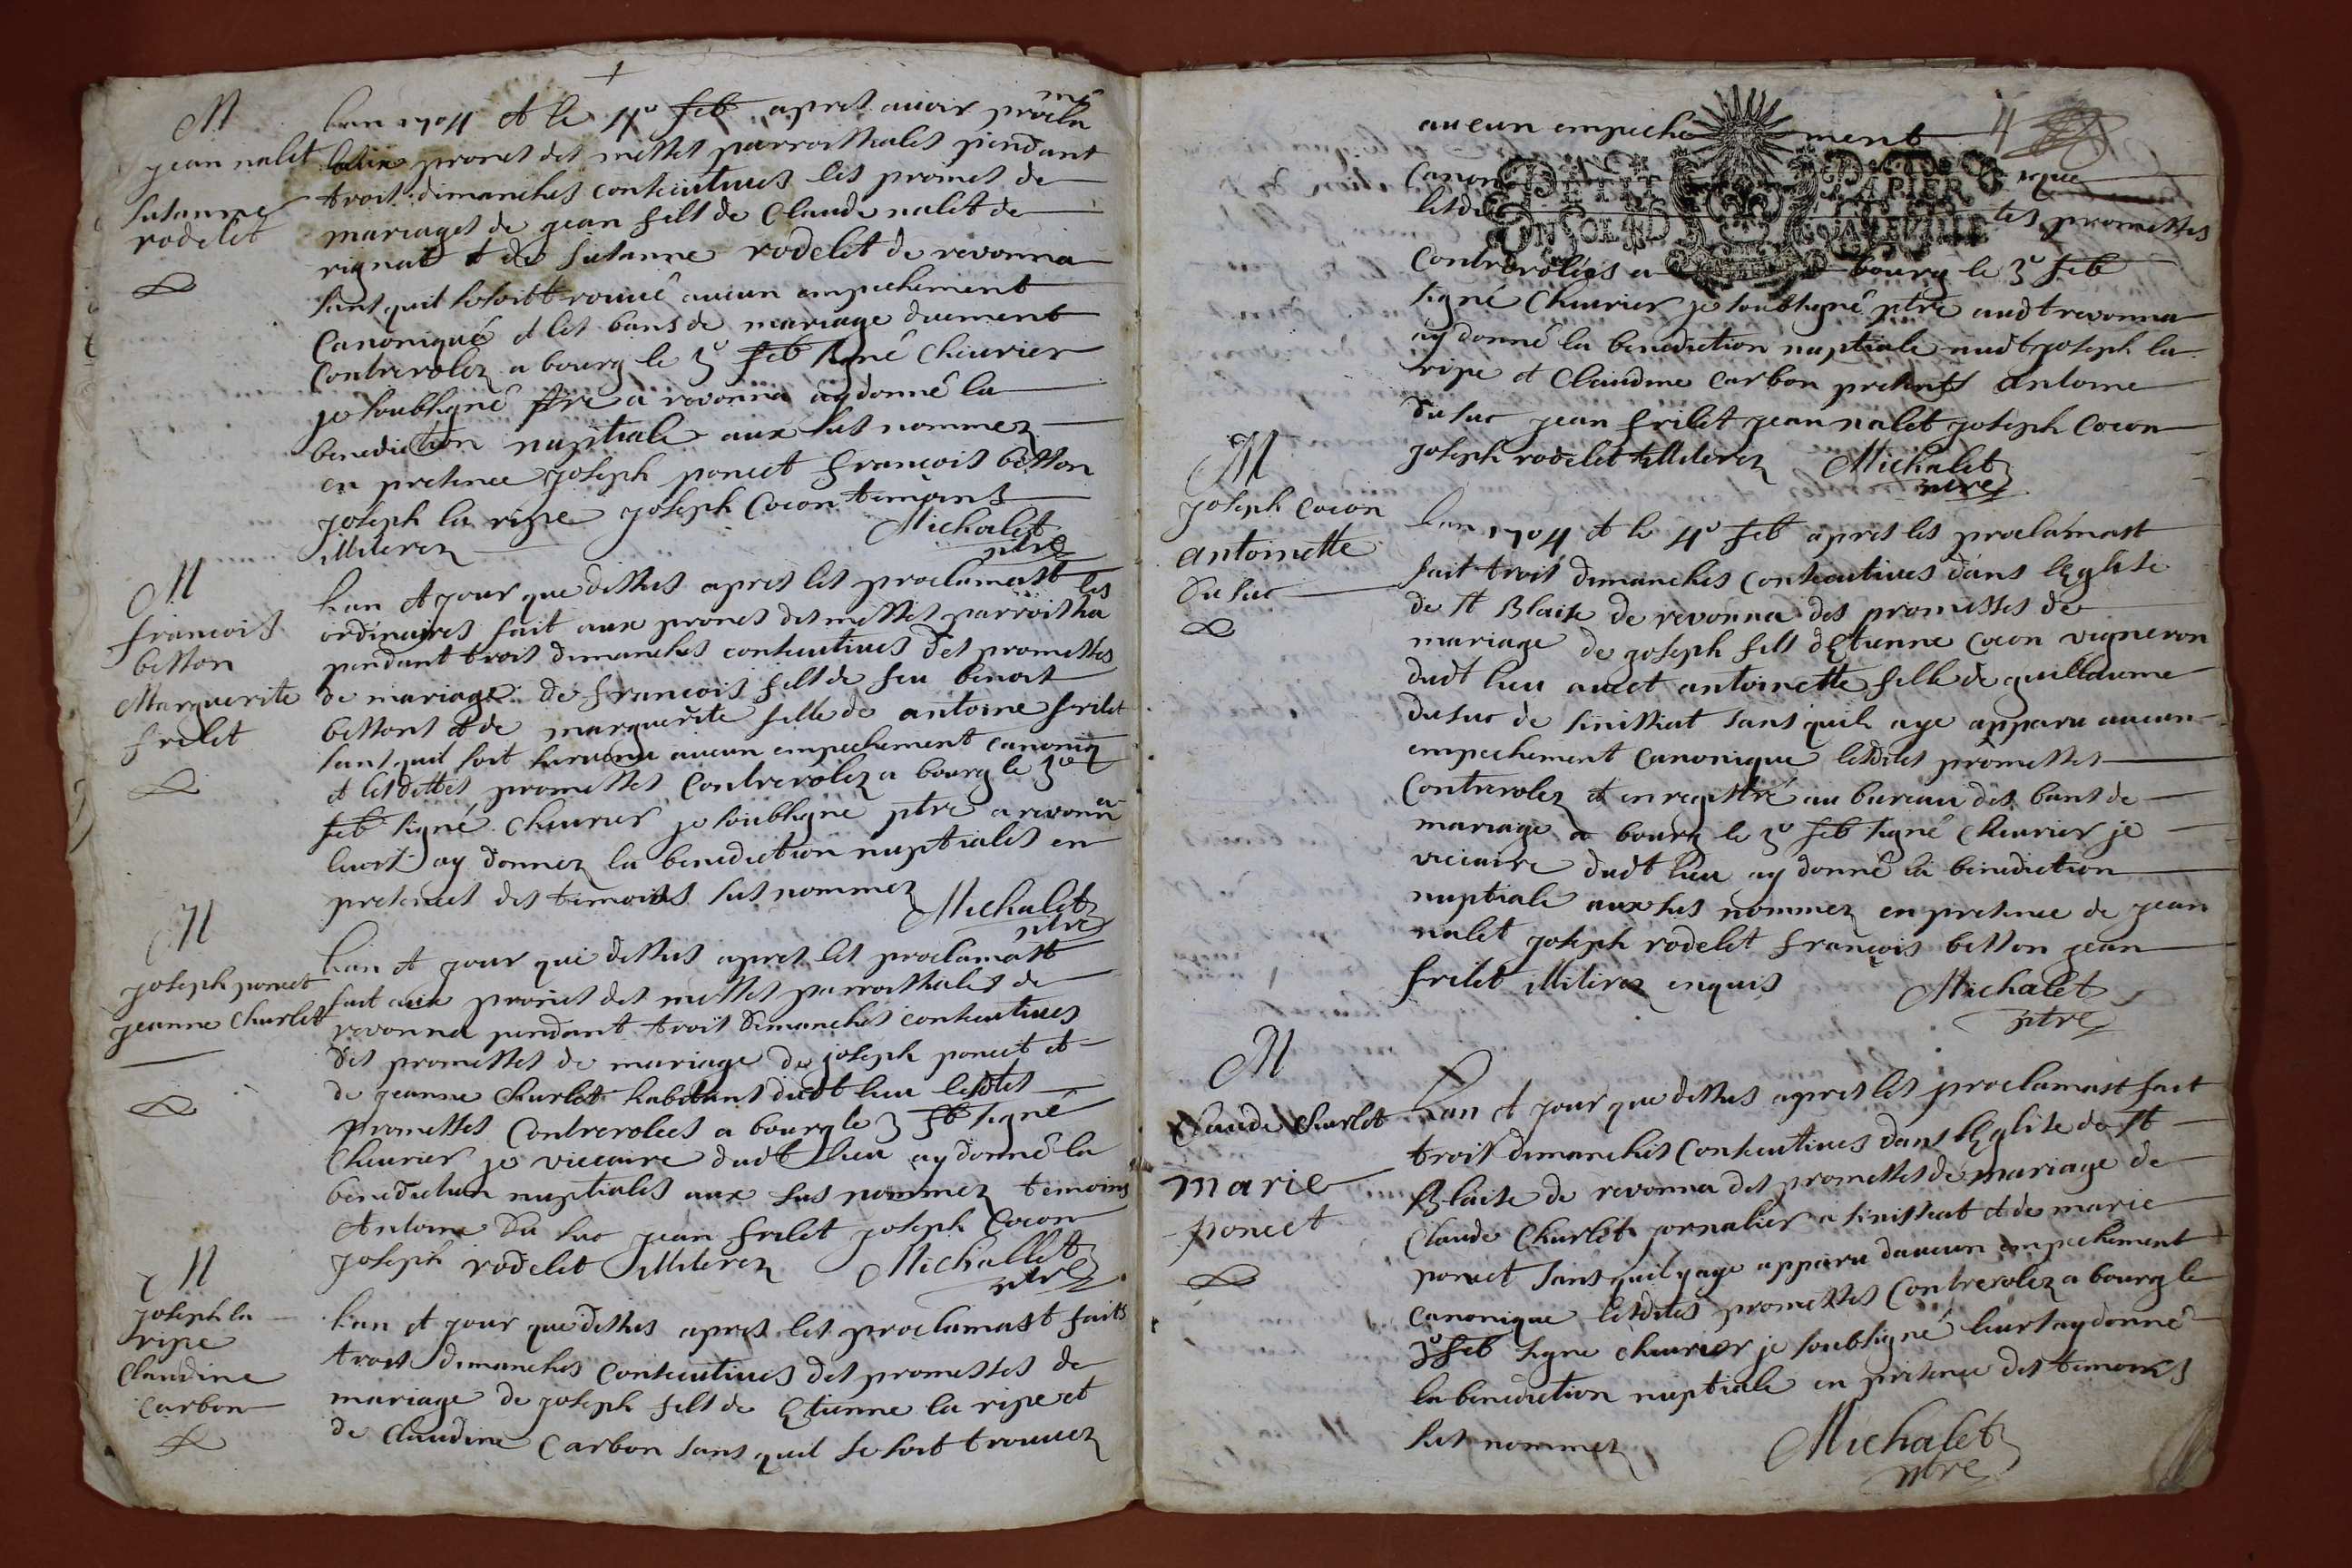 M
jean nalet
susanne
rodelet
lan 1704 et le 4e feb apres avoir procla
mé
aux prones des messes parroissiales pendant
trois dimanches consecutives les promes de
mariages de jean fils de Claude nalet de
rignat et de susanne rodelet de revonna
sans quil se soit trouué aucun empechement
Canonique et les bans de mariage duement
Controrolez a bourg le 3e feb signé cheurier
je soubsigné ptre a revonna ay donné la
benediction nuptiale aux sus nommez
en presence joseph poncet francois besson
joseph la ripe joseph Cocon temoins
illiterez
Michalet
ptre
M
francois
besson
Marguerite
frilet
lan et jour que dessus apres les proclamast
ordinaires fait aux prones des messes parroissia
les
pendant trois dimanches consecutives des promesses
de mariage de francois fils de feu benoit
bessont et de marguerite fille de antoine frilet
sans quil soit survenu aucun empechement canoniq
et lesdittes promesses Controrolez a bourg le 3e
feb signé cheurier je soubsigne ptre a revonna
leurs ay donnez la benediction nuptiales en
presences des temoins sus nommez
Michalet
ptre
M
joseph poncet
jeanne Churlet
lan et jour que dessus apres les proclamast
fait aux prones des messes parroissiales de
revonna pendant trois dimanches consecutives
des promesses de mariage de joseph poncet et
de jeanne Churlet habitans dudt lieu lesdtes
promesses Controrolees a bourg le 3 feb signé
Cheurier je viccaire dudt lieu ay donné la
benediction nuptiales aux sus nommez temoins
Antoine Du suc jean frilet joseph Cocon
joseph rodelet illiterez
Michallet
ptre
M
joseph la
ripe
Claudine
Carbon
lan et jour que dessus apres les proclamast faits
trois dimanches consecutives des promesses de
mariage de joseph fils de Etienne la ripe et
de Claudine Carbon sans quil se soit trouuez
4
aucun empeche ment
Canon ique
PETIT PAPIER
lesdi tes promesses
Controrolées a bourg le 3e feb
signé Cheurier je soubsigné ptre audt revonna
ay donné la benediction nuptiale audt joseph la
ripe et Claudine Carbon presents Antoine
Du suc jean frilet jean nalet joseph Cocon
joseph rodelet illiterez
Michalet
ptre
M
joseph Cocon
antoinette
Du suc
lan 1704 et le 4e feb apres les proclamast
fait trois dimanches consecutives dans lEglise
de st Blaise de revonna des promesses de
mariage de joseph fils dEtienne Cocon vigneron
dudt lieu avec et antoinette fille de guillaume
du suc de simissiat sans quil aye apparu aucun
empechement canonique lesdites promesses
Controrolez et enregistré au bureau des bans de
mariage a bourg le 3e feb signé Cheurier je
viccaire dudt lieu ay donné la benediction
nuptiale aux sus nommez en presence de jean
nalet joseph rodelet françois besson jean
frilet illiterez enquis
Michalet
ptre
M
Claude Churlet
marie
poncet
lan et jour que dessus apres les proclamast fait
trois dimanches consecutives dans lEglise de st
Blaise de revonna des promesses de mariage de
Claude Churlet jornalier a simissiat et de marie
poncet sans quil y aye apparu daucun empechement
canonique lesdites promesses Controrolez a bourg le
3e feb signe cheurier je soubsigné leurs ay donné
la benediction nuptiale en presence des temoins
sus nommez
Michalet
ptre